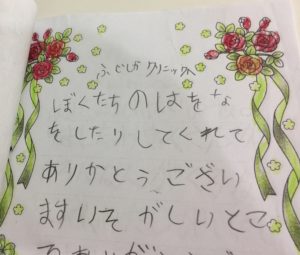 ふじしかクリニックへ
ぼくたちのはをな
をしたりしてくれて
ありかとうござい
ますいそがしいとこ